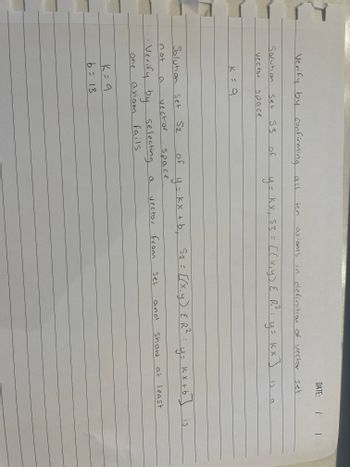 DATE: / /
Verify by confirming all ten axioms in definition of vector set
Solution set S3 of y = kx, S3 = [(x,y) ε R² : y = kx] is a
vector space
k = 9
Solution set S2 of y = kx + b, S2 = [(x,y) ε R² : y = kx + b] is
not a vector space
· Verify by selecting a vector from set and show at least
one axiom fails
k = 9
b = 13